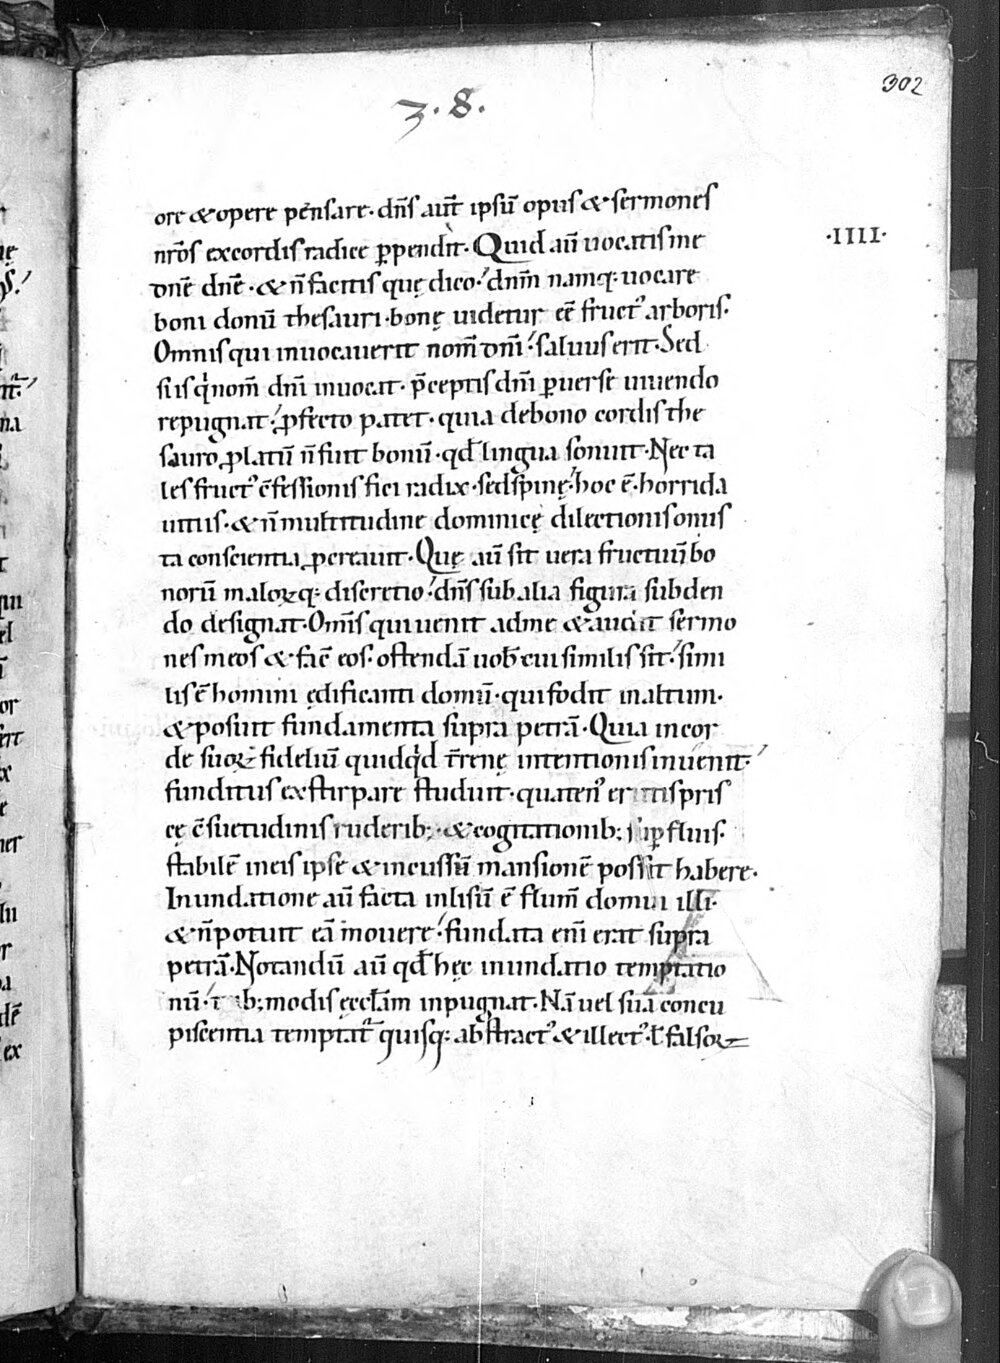 302
3.8.
ore &opere pensare· dn̄s aut̄ ipsū opus & sermones
nr̄os excordis radice ꝑpendit·Quid aū uocatis me ·IIII·
dn̄e dn̄e·& n̄ facitis quę dico? dn̄m namq· uocare
boni donū thesauri·bonę uidetur eē fruct᾽ arboris·
Omnis qui inuocauerit nom̄ dn̄i·saluus erit·Sed
si is q̇ nom̄ dn̄i inuocat· p̄ceptis dn̄i ꝑuerse uiuendo
repugnat·ꝓfecto patet· quia debono cordis the
sauro ꝓlatū n̄ fuit bonū· qd̄ lingua sonuit·Nec ta
les fruct᾽ c̄fessionis fici radix·sed spinę·hoc ē·horrida
uitiis·& n̄ multitudine dominicę dilectionis onus
ta conscientia ꝑcreauit·Quę aū sit uera fructuū bo
norū maloꝝq: discretio·dn̄s sub alia figura subden
do designat·Om̄is qui uenit adme &audit sermo
nes meos & fac̄ eos· ostendā uob̄ cui similis sit·simi
lis ē homini ędificanti domū·qui fodit inaltum·
&posuit fundamenta supra petrā·Quia incor
de suoꝝ fideliū quidq̇d t̄renę intentionis inuenit·
funditus exstirpare studuit·quaten᾽ erutis pris
cę c̄suetudinis ruderib;·&cogitationib; suꝑfluis·
stabilē ineis ipse & incussū mansionē possit habere·
Inundatione aū facta inlisū ē flum̄ domui illi·
& n̄potuit eā mouere·fundata em̄ erat supra
petrā·Notandū aū qd̄ hęc inundatio temptatio
nū· modis ęcclām inpugnat·Nā uel sua concu
piscentia temptat̄ quisq: abstract᾽ & illect᾽·ł falsoꝝ